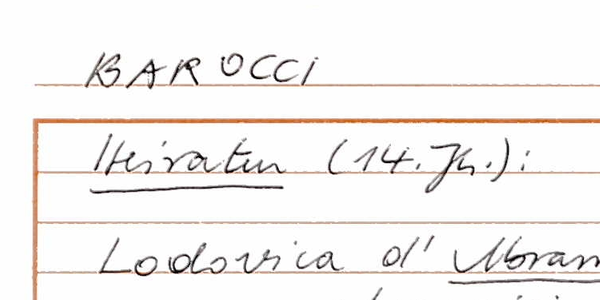 BAROCCI
Heiraten (14. Jh.):
Lodovica d'